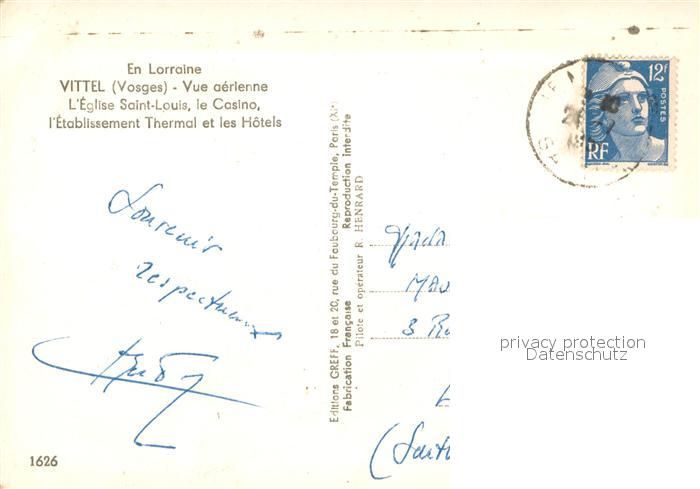 En Lorraine
VITTEL (Vosges) - Vue aérienne
L'Église Saint-Louis, le Casino,
l'Établissement Thermal et les Hôtels
12F
POSTES
RF
Souvenir
respectueux
Editions GREFF, 18 et 20, rue du Faubourg-du-Temple, Paris (XIe)
Fabrication Française Reproduction interdite
Pilote et opérateur R. HENRARD
MAU
3 R
(Sart
privacy protection
Datenschutz
1626